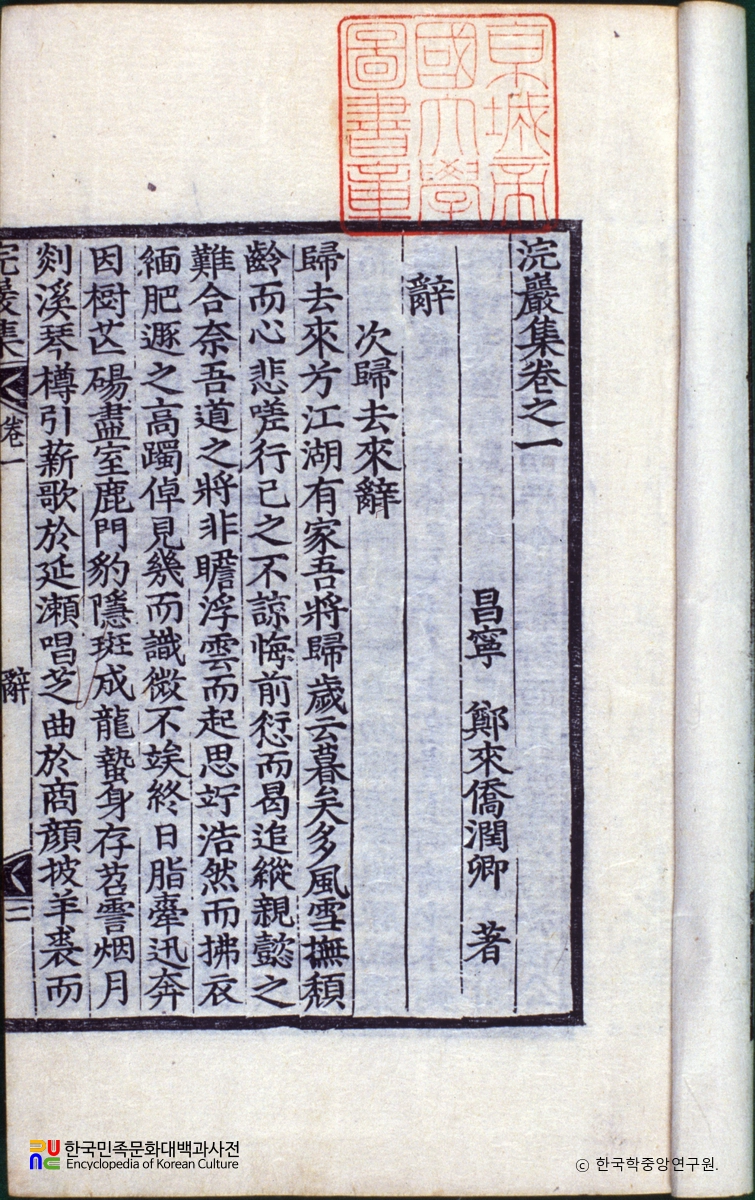 京城帝
國大學
圖書章
浣巖集卷之一
昌寧 鄭來僑潤卿 著
辭
次歸去來辭
歸去來兮江湖有家吾將歸歲云暮矣多風雪撫頹
齡而心悲嗟行己之不諒悔前愆而曷追縱親懿之
難合奈吾道之將非瞻浮雲而起思竚浩然而拂衣
緬肥遯之高躅倬見幾而識微不竢終日脂舝迅奔
因樹芒碭盡室鹿門豹隱斑成龍蟄身存苕霅烟月
剡溪琴樽引薪歌於延瀨唱芝曲於商顏披羊裘而
浣巖集 卷一 辭
한국민족문화대백과사전
Encyclopedia of Korean Culture
© 한국학중앙연구원.